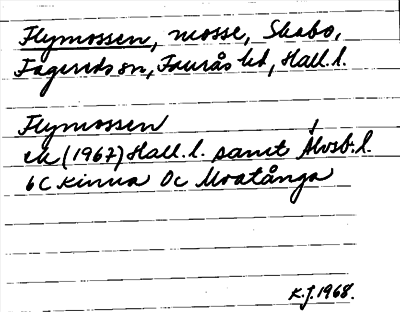 Flymossen, mosse, Skabo,
Fagereds sn, Faurås hd, Hall. l.
Flymossen
ek (1967) Hall. l. samt Älvsb. l.
6C Kinna 0c Mratånga
K.J. 1968.